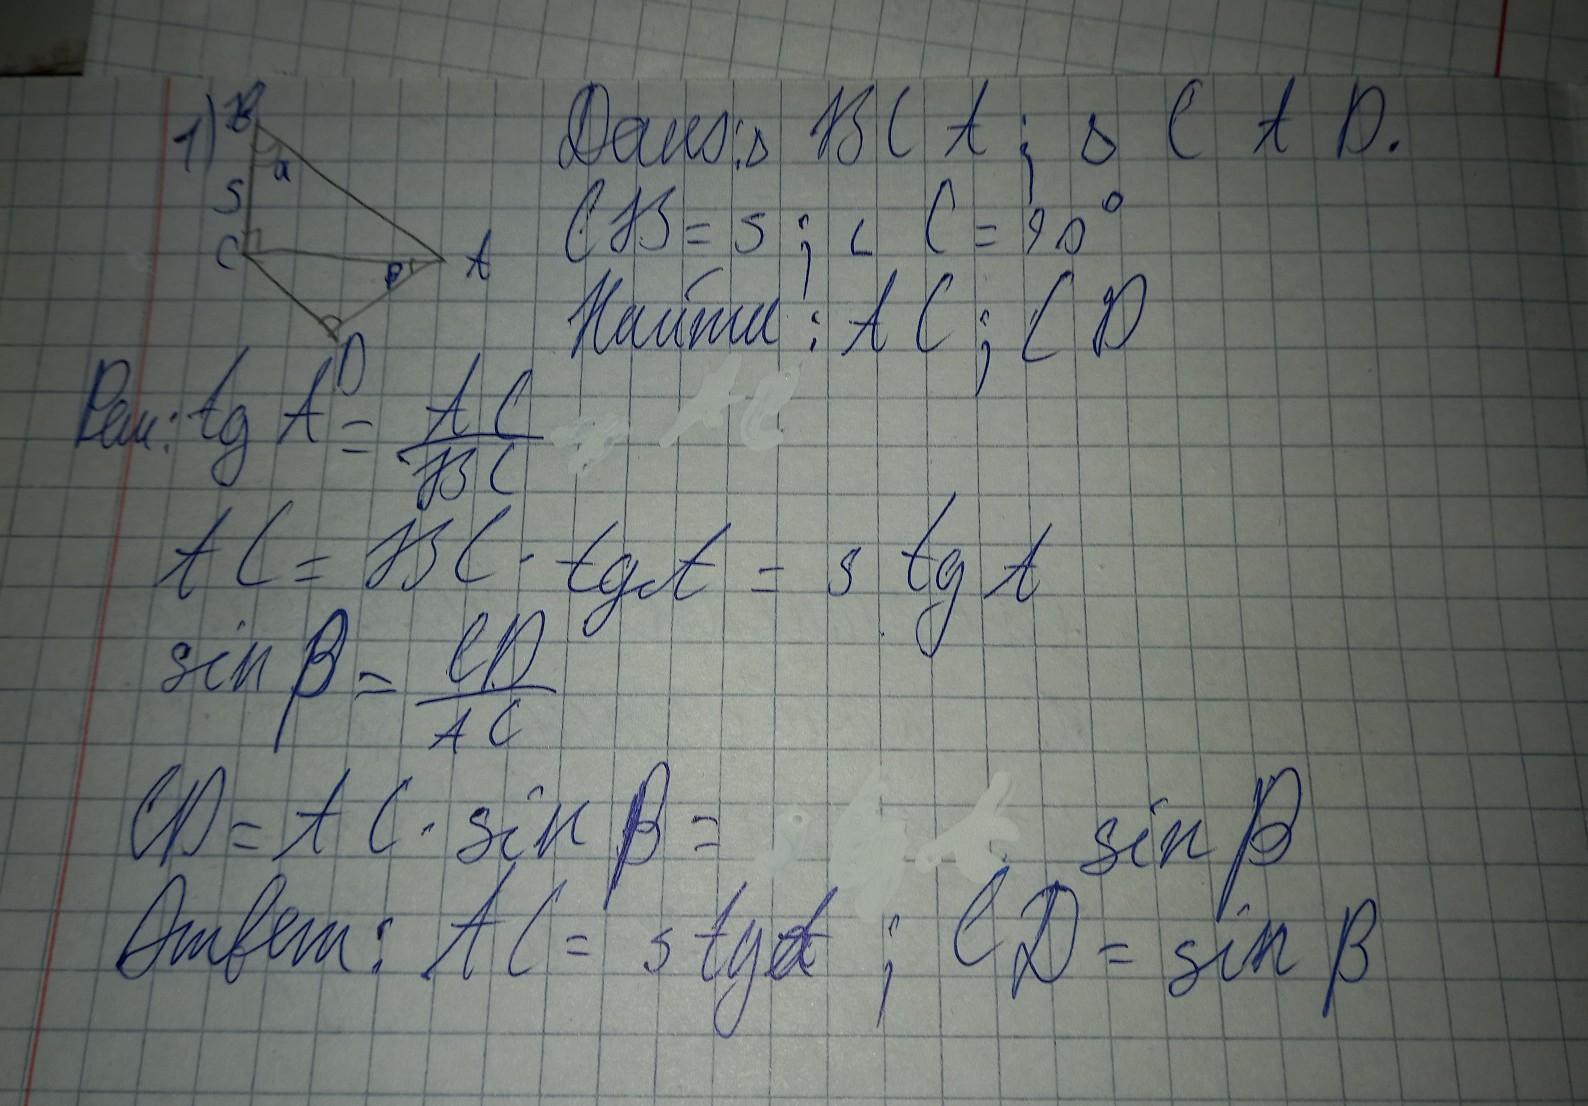 1) B
a
S
C
A
β
D
Дано: Δ BCA; Δ CAD.
CB = s; ∠ C = 90°
Найти: AC; CD
Реш: tg A = AC / BC
AC = BC · tg A = s tg A
sin β = CD / AC
CD = AC · sin β = sin β
Ответ: AC = s tg α; CD = sin β